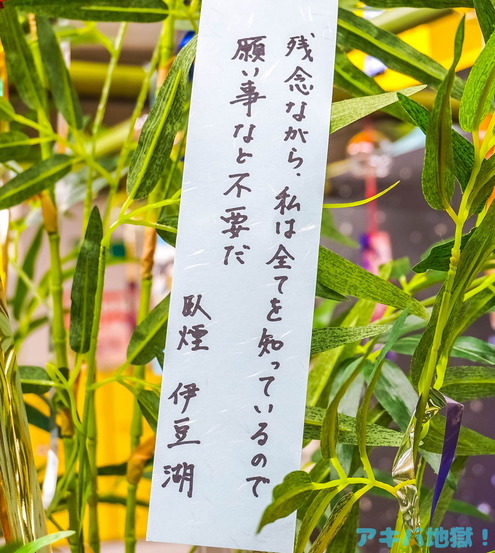 残念ながら、私は全てを知っているので
願い事など不要だ
臥煙 伊豆湖
アキバ地獄!